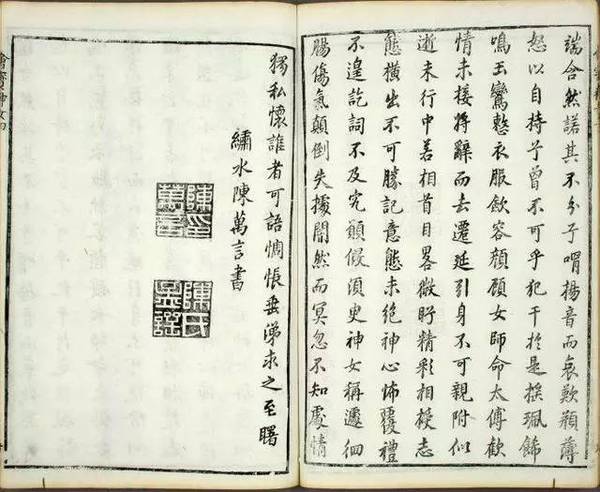 端合然諾其不分兮喟揚音而哀歎頩薄
怒以自持兮曾不可乎犯干於是搖珮飾
鳴玉鸞整衣服斂容顏顧女師命太傅歡
情未接將辭而去遷延引身不可親附似
逝未行中若相首目畧微眄精彩相授志
態橫出不可勝記意態未絕神心怖覆禮
不遑訖詞不及究願假須臾神女稱遽徊
腸傷氣顛倒失據闇然而冥忽不知處情
獨私懷誰者可語惆悵垂涕求之至曙
繡水陳萬言書
陳印萬言
陳氏